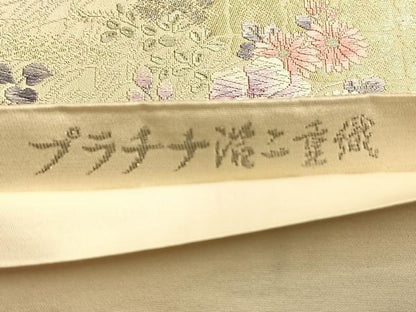 プラチナ港二重織